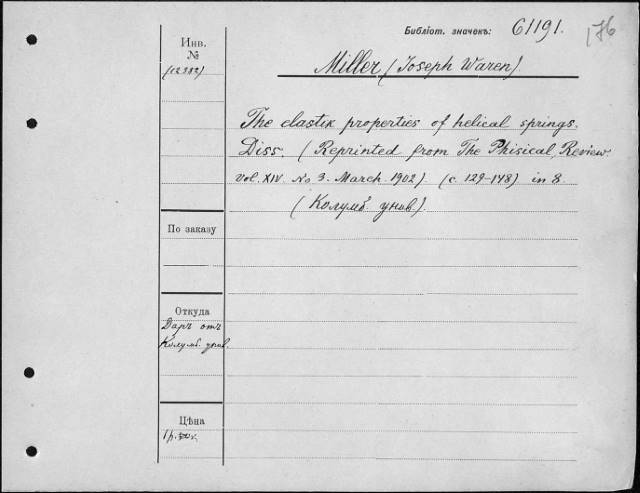 Библіот. значекъ: 61191. 176
Инв. №
(12382)
Miller (Joseph Waren).
The elastik properties of helical springs.
Diss. (Reprinted from The Phisical Review.
Vol. XIV. No 3. March. 1902) (с. 129-148) in 8.
(Колумб. унив).
По заказу
Откуда
Даръ отъ
Колумб. унив.
Цѣна
1 р.